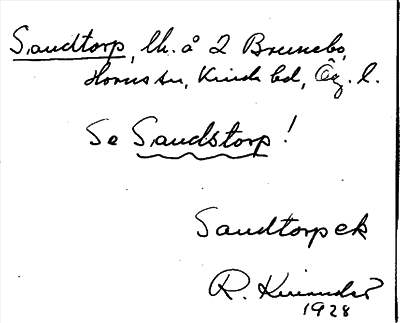 Sandtorp, lh. å 2 Brunebo,
Horns sn, Kinds hd, Ög. l.
Se Sandstorp!
Sandtorpek
R.
1928